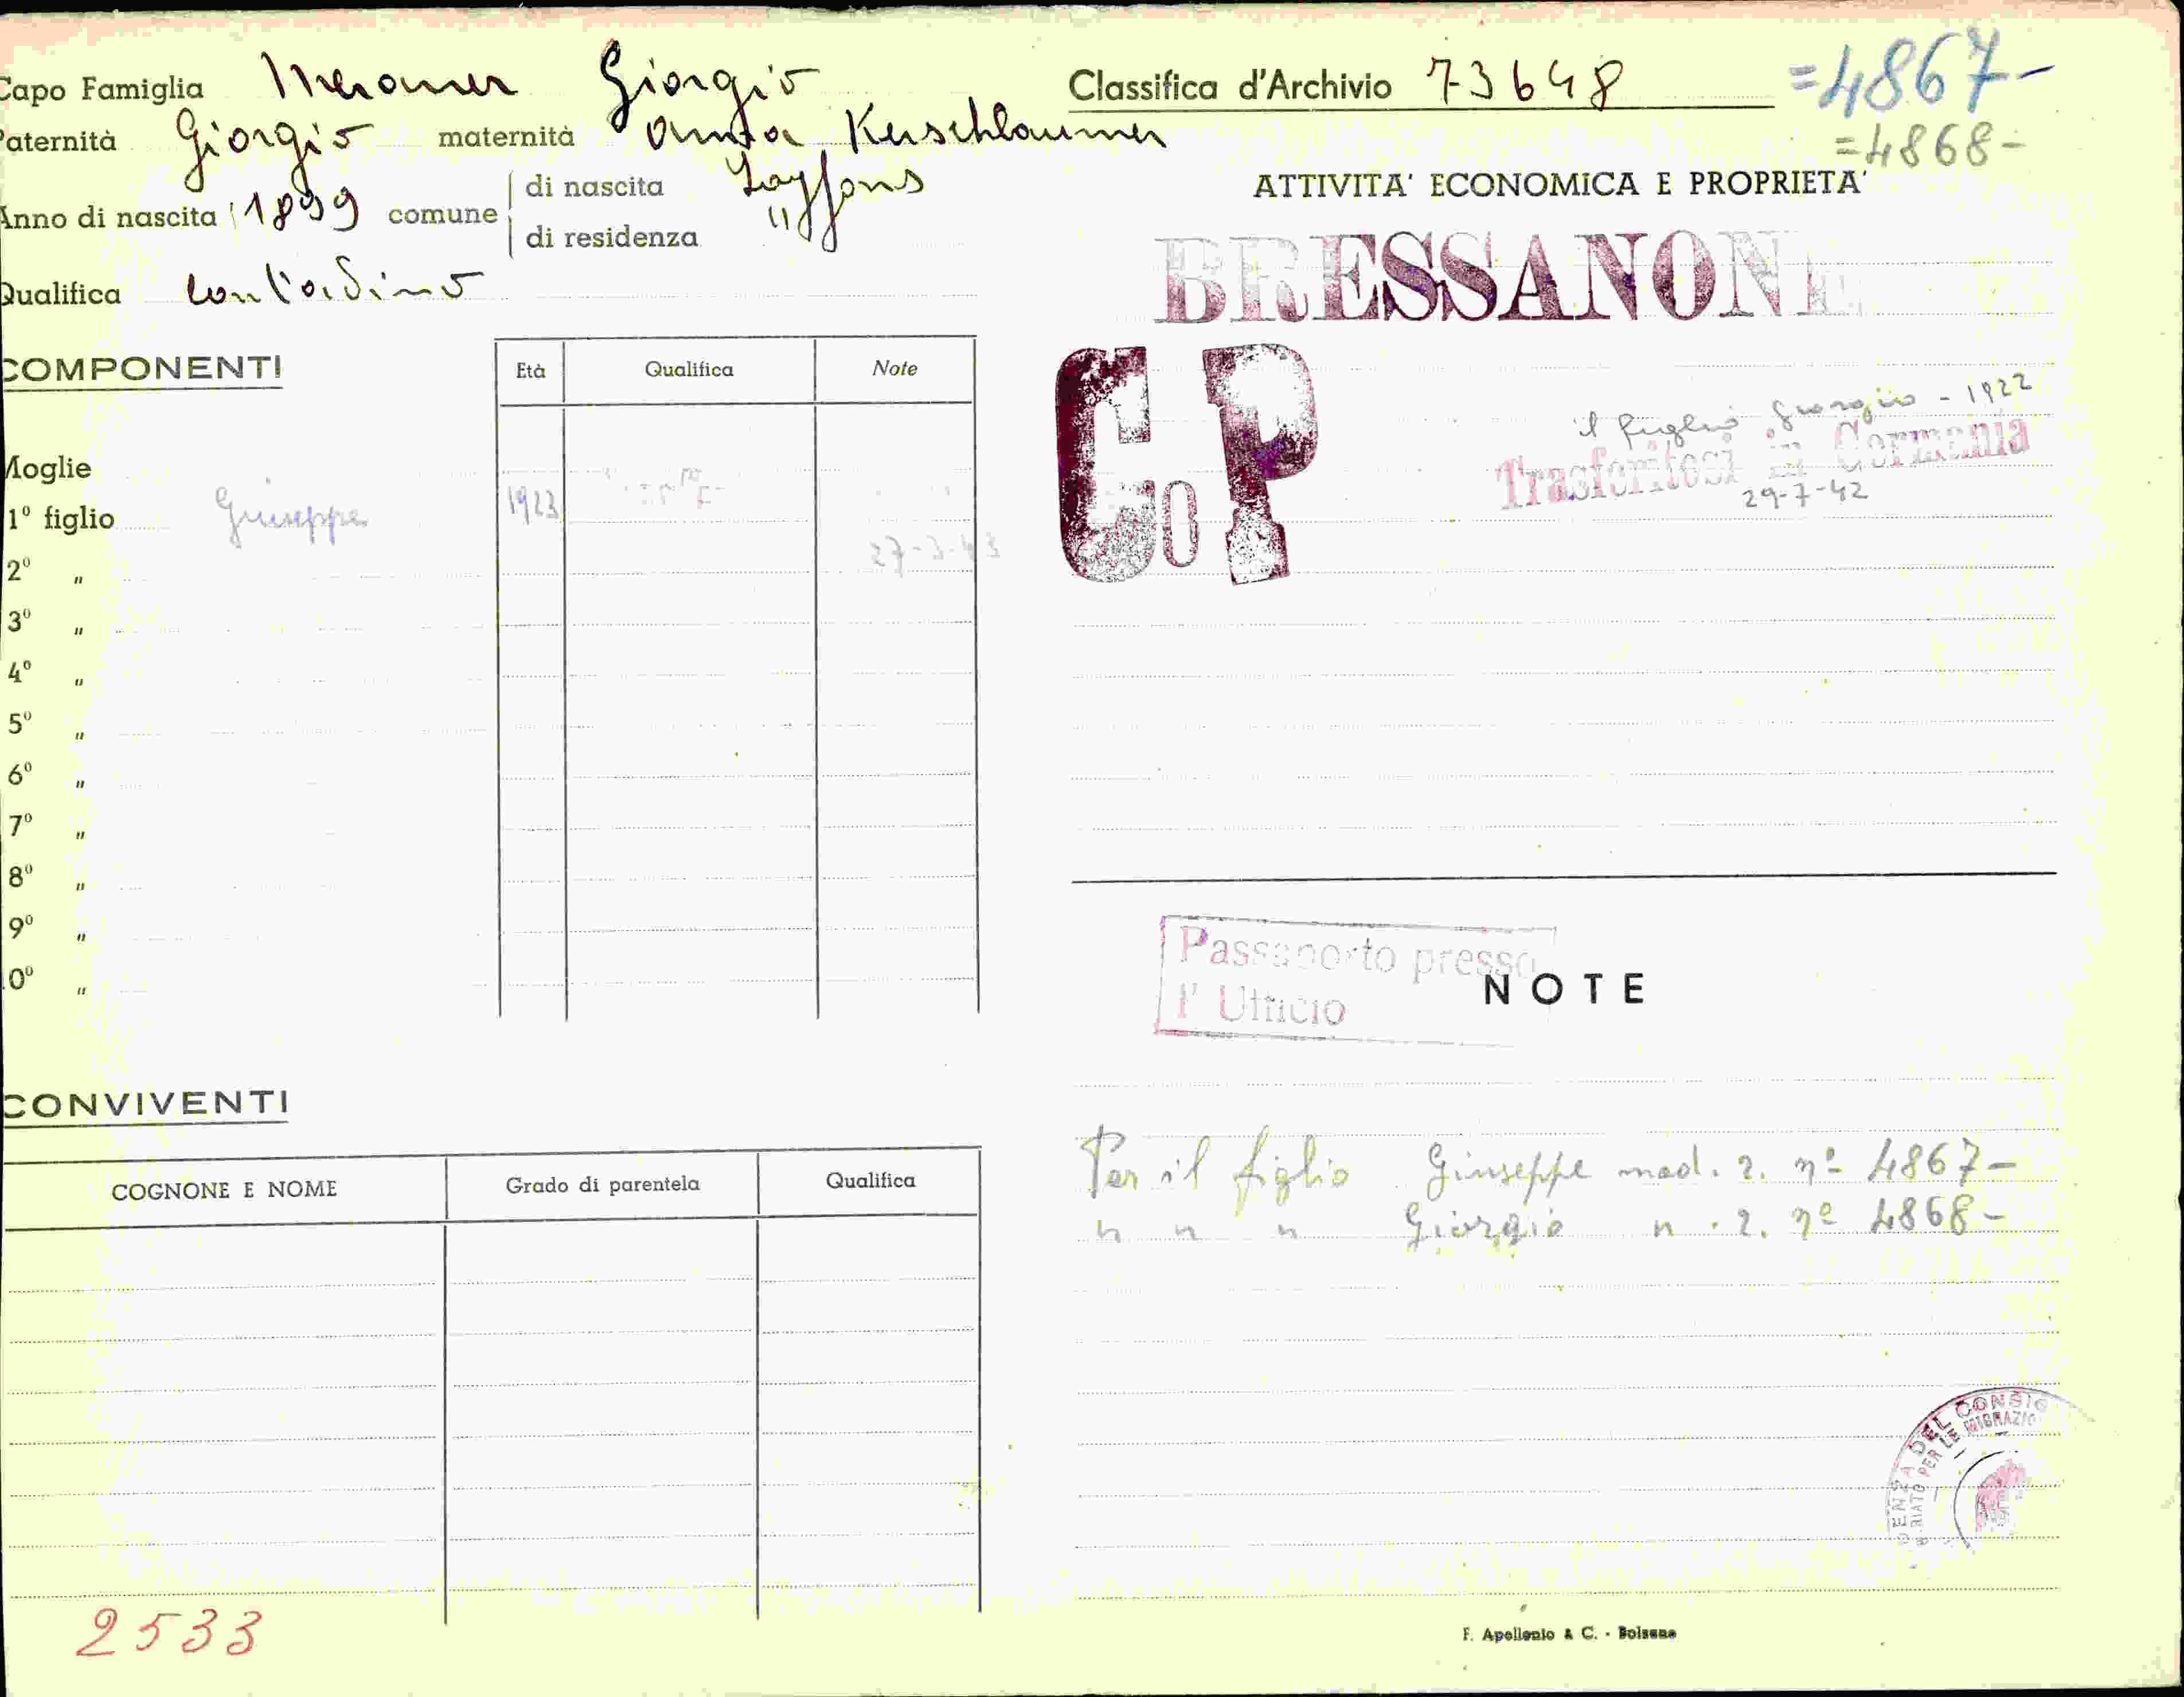 Capo Famiglia Meraner Giorgio
Paternità Giorgio maternità Anna Kerschbaumer
Anno di nascita 1899 comune di nascita Lajfons
di residenza "
Qualifica contadino
COMPONENTI
Età Qualifica Note
Moglie
1º figlio Giuseppe 1923
27-3-43
2º "
3º "
4º "
5º "
6º "
7º "
8º "
9º "
10º "
CONVIVENTI
COGNONE E NOME Grado di parentela Qualifica
2533
Classifica d'Archivio 73648 =4867-
=4868-
ATTIVITA' ECONOMICA E PROPRIETA'
BRESSANONE
CoP
il figlio Giorgio - 1922
Trasferitosi in Germania
29-7-42
Passaporto presso
l' Ufficio
NOTE
Per il figlio Giuseppe mod. 2. nº 4867-
" " " Giorgio " . 2. nº 4868-
DENZA DEL CONSIG
RIATO PER LE MIGRAZIO
F. Apollonio & C. - Bolzano